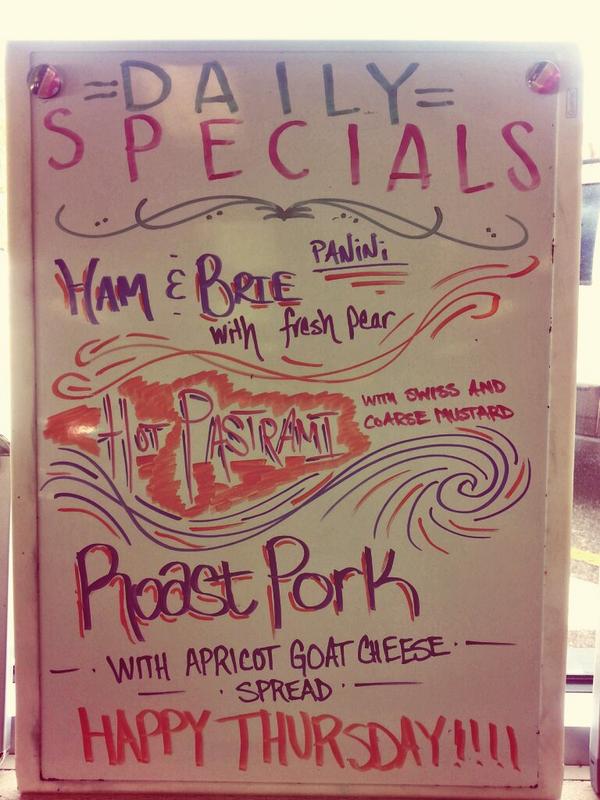 =DAILY=
SPECIALS
HAM & BRIE PANINI
with fresh pear
HOT PASTRAMI WITH SWISS AND
COARSE MUSTARD
Roast Pork
- · WITH APRICOT GOAT CHEESE · -
- · SPREAD · -
HAPPY THURSDAY!!!!